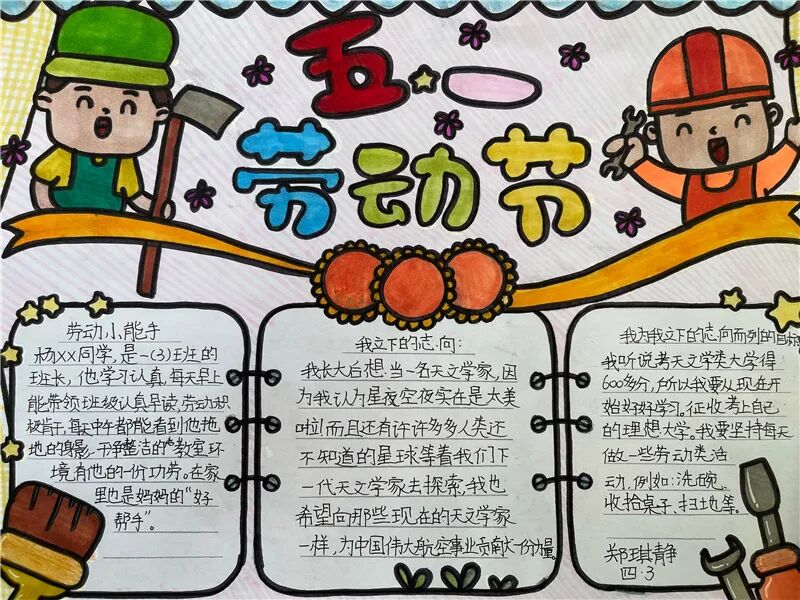 五·一
劳动节
劳动小能手
杨XX同学,是一(3)班的
班长,他学习认真,每天早上
能带领班级认真早读,劳动积
极肯干,每天中午都能看到他拖
地的身影,干净整洁的教室环
境有他的一份功劳。在家
里他是妈妈的“好
帮手”。
我立下的志向:
我长大后想当一名天文学家,因
为我认为星夜空夜实在是太美
啦!而且还有许许多多人类还
不知道的星球等着我们下
一代天文学家去探索,我也
希望向那些现在的天文学家
一样,为中国伟大航空事业贡献一份力量。
我为我立下的志向而列的目标
我听说考天文学类大学得
600多分,所以我要从现在开
始好好学习。征收考上自己
的理想大学。我要坚持每天
做一些劳动类活
动,例如:洗碗、
收拾桌子、扫地等。
郑琪静
四·3